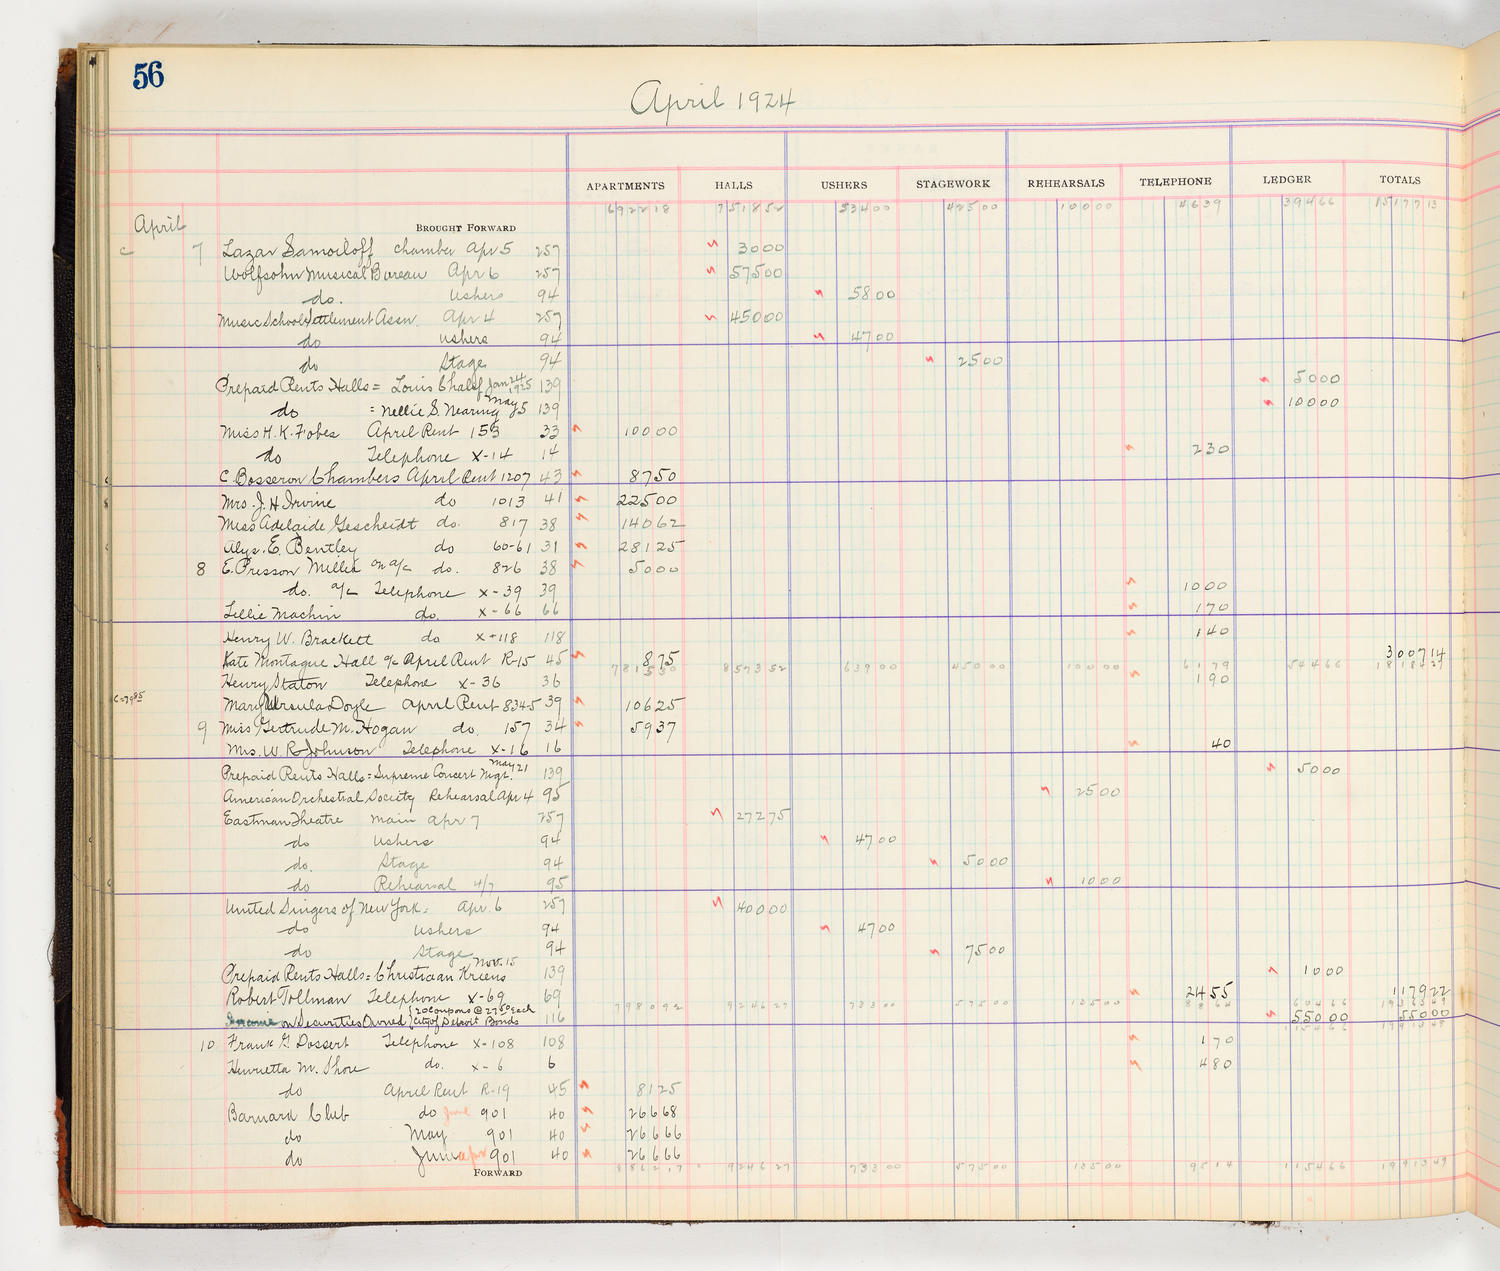 56
April 1924
APARTMENTS HALLS USHERS STAGEWORK REHEARSALS TELEPHONE LEDGER TOTALS
692218 751852 53400 42500 10000 4639 39466 1517713
April BROUGHT FORWARD
c 7 Lazar Samoiloff chamber Apr 5 257 3000
Wolfsohn Musical Bureau Apr 6 257 57500
do. ushers 94 5800
Music School Settlement Assn. Apr 4 257 45000
do ushers 94 4700
do Stage 94 2500
Prepaid Rents Halls = Louis Chalif Jan 24 1925 139 5000
do = Nellie S. Nearing May 5 139 10000
Miss H. K. Fobes April Rent 153 33 10000
do Telephone X-14 14 230
C Bosseron Chambers April Rent 1207 43 8750
Mrs. J. H. Irvine do 1013 41 22500
Miss Adelaide Gescheidt do. 817 38 14062
Alys. E. Bentley do 60-61 31 28125
8 E. Presson Miller on a/c do. 826 38 5000
do. a/c Telephone X-39 39 1000
Lillie Machin do. X-66 66 170
Henry W. Brackett do X-118 118 140
Kate Montague Hall a/c April Rent R-15 45 875 300714
781530 857352 63900 45000 10000 6179 54466 1818427
Henry Staton Telephone X-36 36 190
C=79 85 Mary Ursula Doyle April Rent 834-5 39 10625
9 Miss Gertrude M. Hogan do. 157 34 5937
Mrs. W. R. Johnson Telephone X-16 16 40
Prepaid Rents Halls = Supreme Concert Mgt. May 21 139 5000
American Orchestral Society Rehearsal Apr 4 95 2500
Eastman Theatre main Apr 7 257 27275
do ushers 94 4700
do. Stage 94 5000
do Rehearsal 4/7 95 1000
United Singers of New York = Apr. 6 257 40000
do ushers 94 4700
do Stage 94 7500
Prepaid Rents Halls = Christiaan Kriens Nov. 15 139 1000
Robert Tollman Telephone X-69 69 2455 117922
798092 924627 73300 57500 13500 8864 60466 1936349
Income on Securities Owned {20 Coupons @ 27 50 Each City of Detroit Bonds 116 55000 55000
115466 1991349
10 Frank G. Dossert Telephone X-108 108 170
Henrietta M. Shore do. X-6 6 480
do April Rent R-19 45 8125
Barnard Club do June 901 40 26668
do May 901 40 26666
do June apr 901 40 26666
FORWARD 886217 924627 73300 57500 13500 9514 115466 1991349